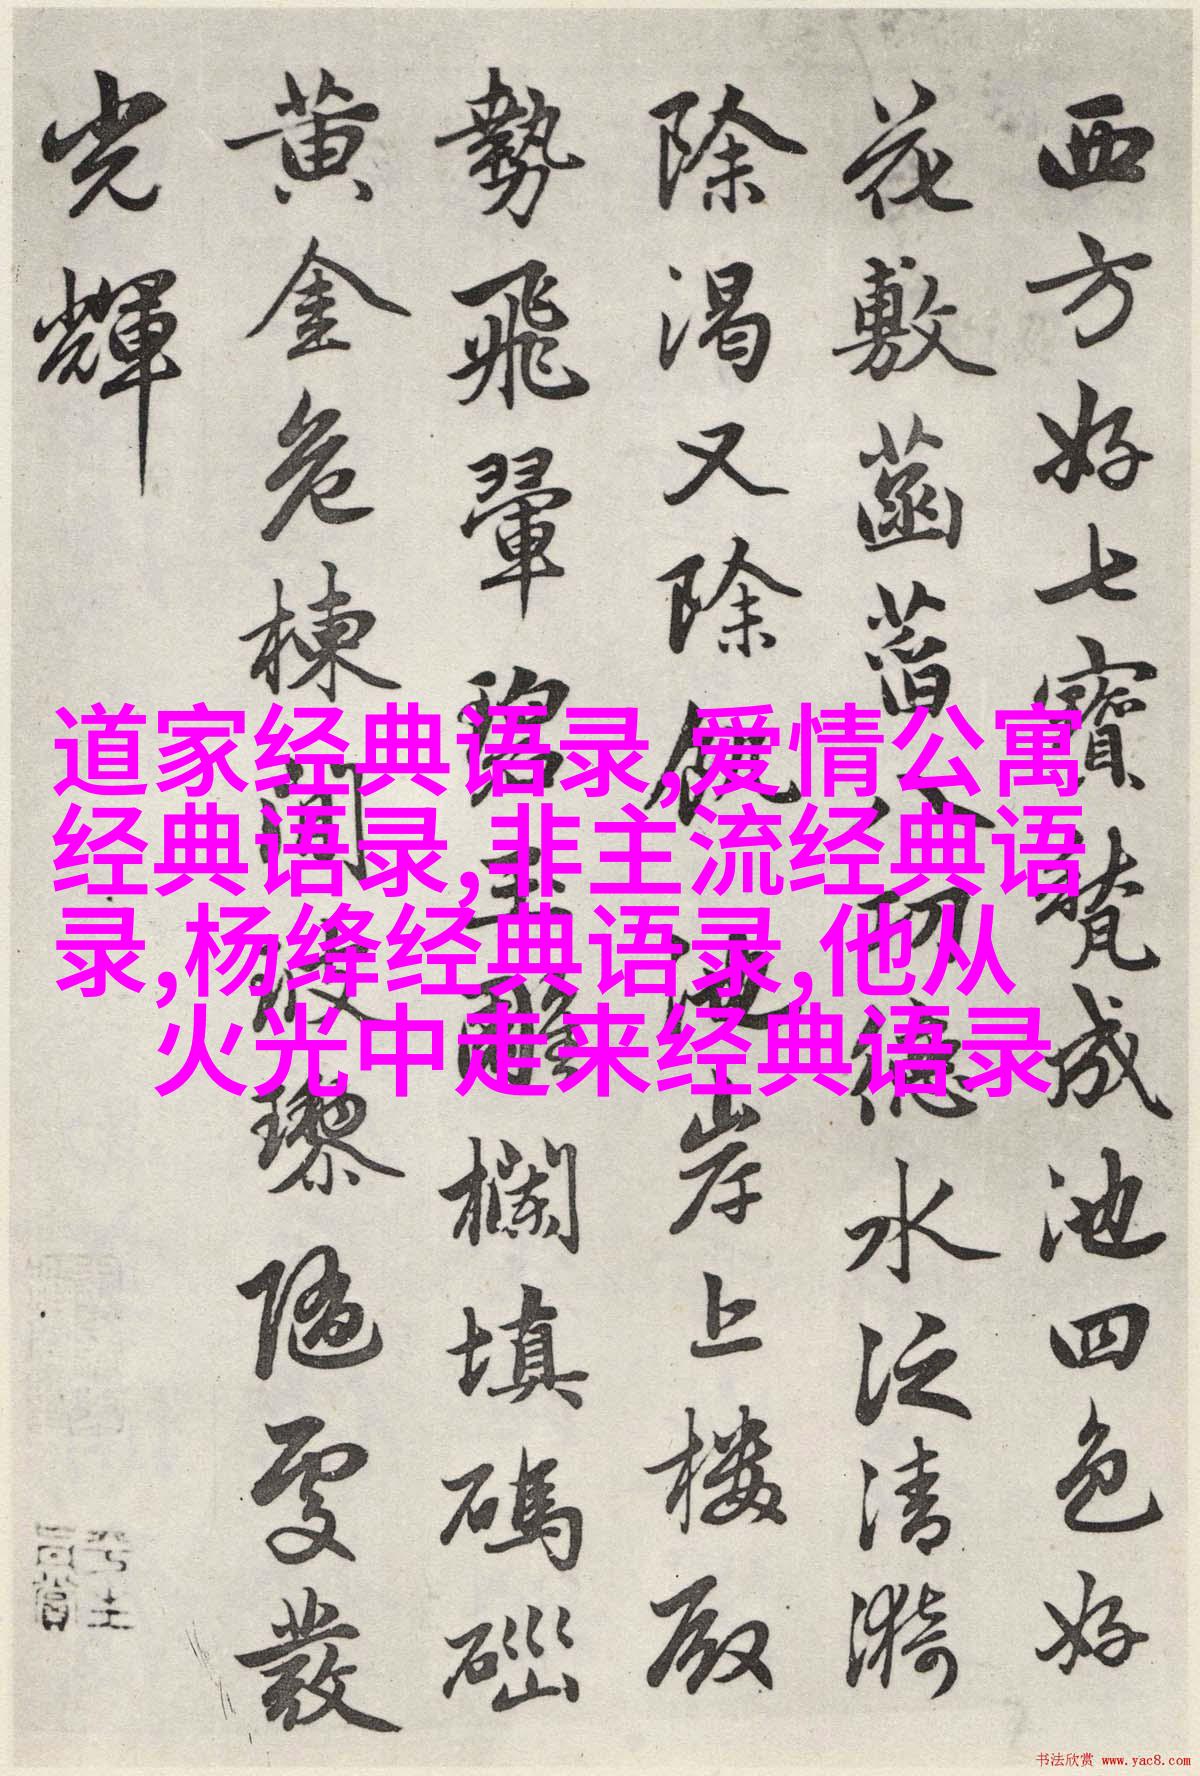 西方好七寶甃成池四色好
花敷菡萏八功德水泛清漪
除渴又除飢池岸上樓殿
勢飛翬碧玉雕欄填碼碯
黄金危棟間玻瓈隨處發
光輝
道家经典语录,爱情公寓
经典语录,非主流经典语
录,杨绛经典语录,他从
火光中走来经典语录
书法欣赏 www.yac8.com